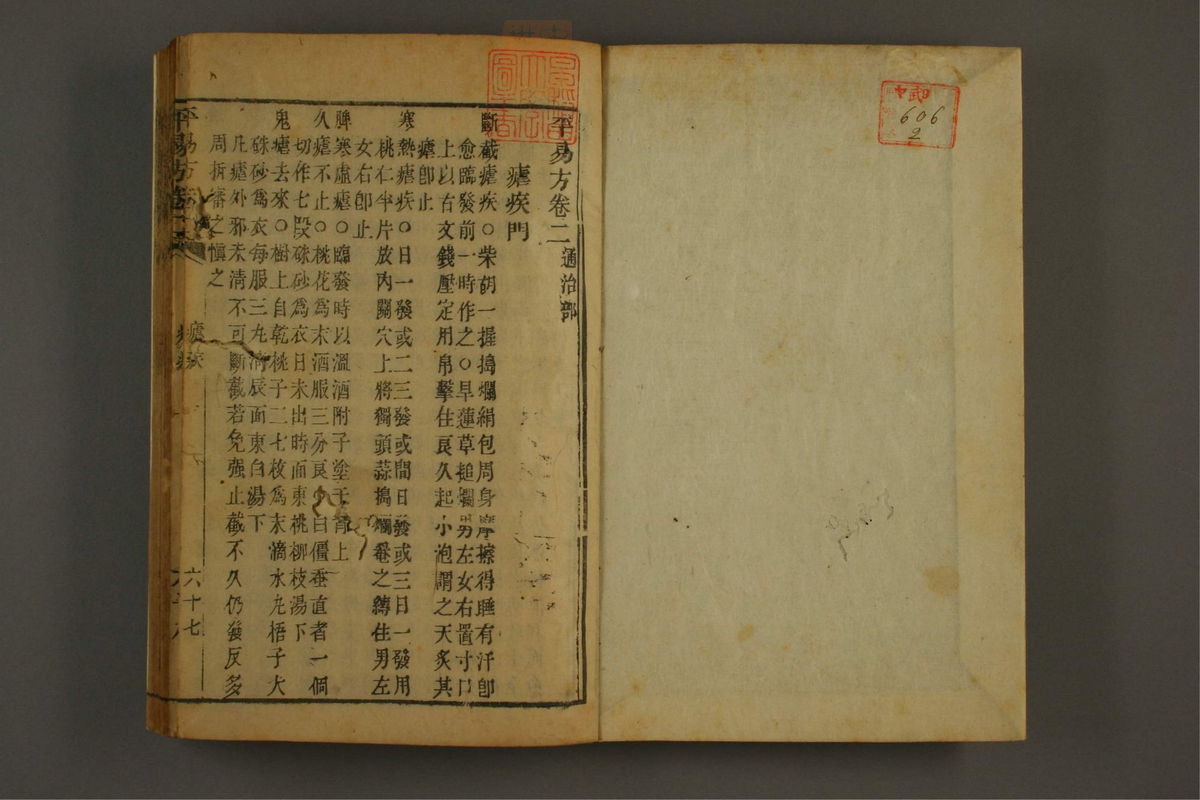 中 部
606
2
平易方卷二 通治部
瘧疾門
斷截瘧疾○柴胡一握搗爛絹包周身摩擦得睡有汗卽
愈臨發前一時作之○旱蓮草搥爛男左女右置寸口
上以古文錢壓定用帛擊住良久起小泡謂之天炙其
瘧卽止
寒熱瘧疾○日一發或二三發或間日發或三日一發用
桃仁半片放內關穴上將獨頭蒜搗爛罨之縛住男左
女右卽止
脾寒虛瘧○臨發時以溫酒附子塗于背上
久瘧不止○桃花爲末酒服三分良○白僵蚕直者一個
切作七段硃砂爲衣日未出時面東桃柳枝湯下
鬼瘧去來○樹上自乾桃子二七枚爲末滴水丸梧子大
硃砂爲衣每服三丸清辰面東白湯下
凡瘧外邪未清不可斷截若免强止截不久仍發反多
周折審之愼之
平易方 瘧疾 六十七
平易方卷二